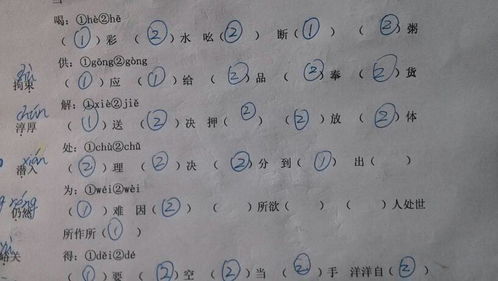 喝：①hè②hē
（①）彩 （②）水 吆（②） 断（①） （②）粥
供：①gōng②gòng
拘束 （①）应 （①）给 （②）品 （②）奉 （②）货
解：①xiè②jiě
chún
淳厚 （①）送 （②）决 押（②） （②）放 （②）体
处：①chǔ②chù
潜入 （②）理 （②）决 （②）分 到（①） 出（ ）
为：①wéi②wèi
réng
仍然 （①）难 因（②） （ ）所欲（ ） （ ）人处世
所作所（①）
得：①děi②dé
关 （①）要 （②）空 （②）当 （②）手 洋洋自（②）